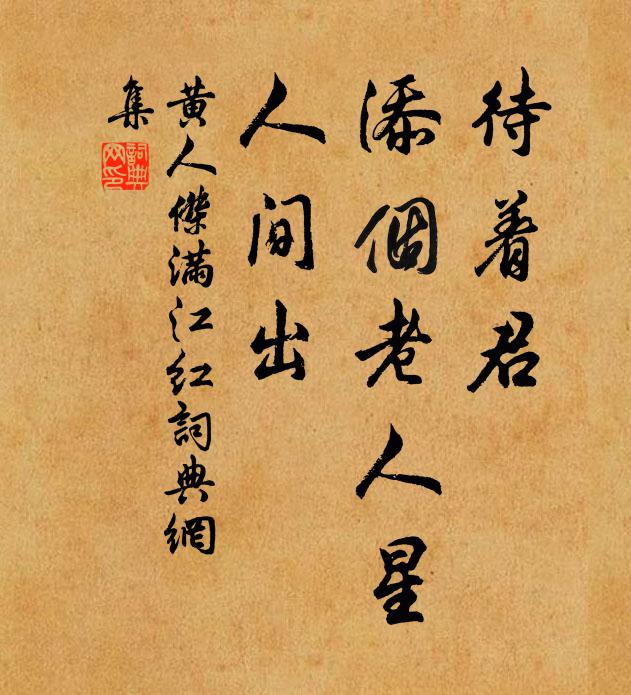 待着君
添個老人星
人間出
黄人傑滿江紅詞典網
集
詞典
网印